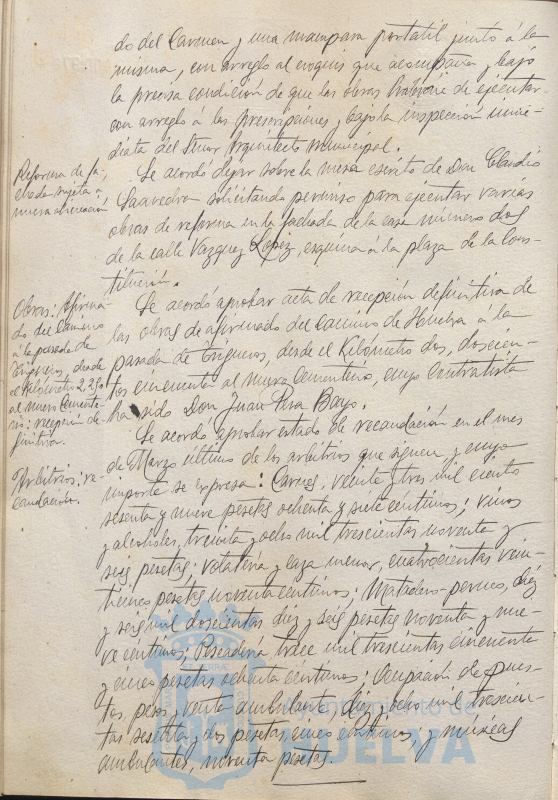 do del Carmen y una mampara portatil junto á la
misma, con arreglo al croquis que acompaña y bajo
la precisa condición de que las obras habran de ejecutar-
con arreglo á las prescripciones, y bajo la inspección inme-
diata del Señor Arquitecto Municipal.
Reforma de fa-
chada sujeta a
nueva alineación
Se acordó dejar sobre la mesa escrito de Don Claudio
Saavedra solicitando permiso para ejecutar varias
obras de reforma en la fachada de la casa número dos
de la calle Vazquez Lopez, esquina á la plaza de la Cons-
titución.
Obras: Afirma-
do del Camino
á la pasada de
Trigueros, desde
el Kilómetro 2,250
al nuevo Cemente-
rio: recepción de-
finitiva.
Se acordó aprobar acta de recepción definitiva de
las obras de afirmado del Camino de Huelva á la
pasada de Trigueros, desde el Kilómetro dos, doscien-
tos cincuenta al nuevo Cementerio, cuyo contratista
ha sido Don Juan Bayo.
Arbitrios: re-
caudación.
Se acordó aprobar estado de recaudación en el mes
de Marzo último de los arbitrios que siguen y cuyo
importe se expresa: Carnes, veinte y tres mil ciento
sesenta y nueve pesetas ochenta y siete centimos; vinos
y alcoholes, treinta y ocho mil trescientas noventa y
seis pesetas; volatería y caza menor, cuatrocientas vein-
ticinco pesetas noventa centimos; Matadero-permiso, diez
y seis mil doscientas diez y seis pesetas noventa y nue-
ve centimos; Pescadería trece mil trescientas cincuenta
y cinco pesetas ochenta centimos; ocupación de pues-
tos, pesos, venta ambulante, diez y ocho mil trescien-
tas sesenta y dos pesetas cinco centimos; y músicas
ambulantes, noventa pesetas.
Ayuntamiento de
HUELVA